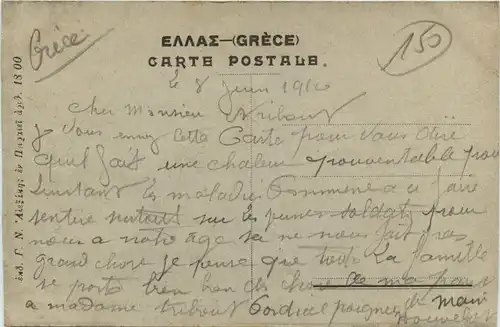 Grèce
150
ΕΛΛΑΣ—(GRÈCE)
CARTE POSTALE.
le 8 juin 1916
Cher Monsieur Tribout
je vous envoy cette Carte pour vous dire
quil fait une chaleur épouventable pour
linstant les maladies Commence a ce faire
sentire surtout sur les jeunes soldats pour
nous a notre age sa ne nous fait pas
grand chose je pense que toute la famille
se porte bien bon des chose
a madame Tribout Cordial poignez de main